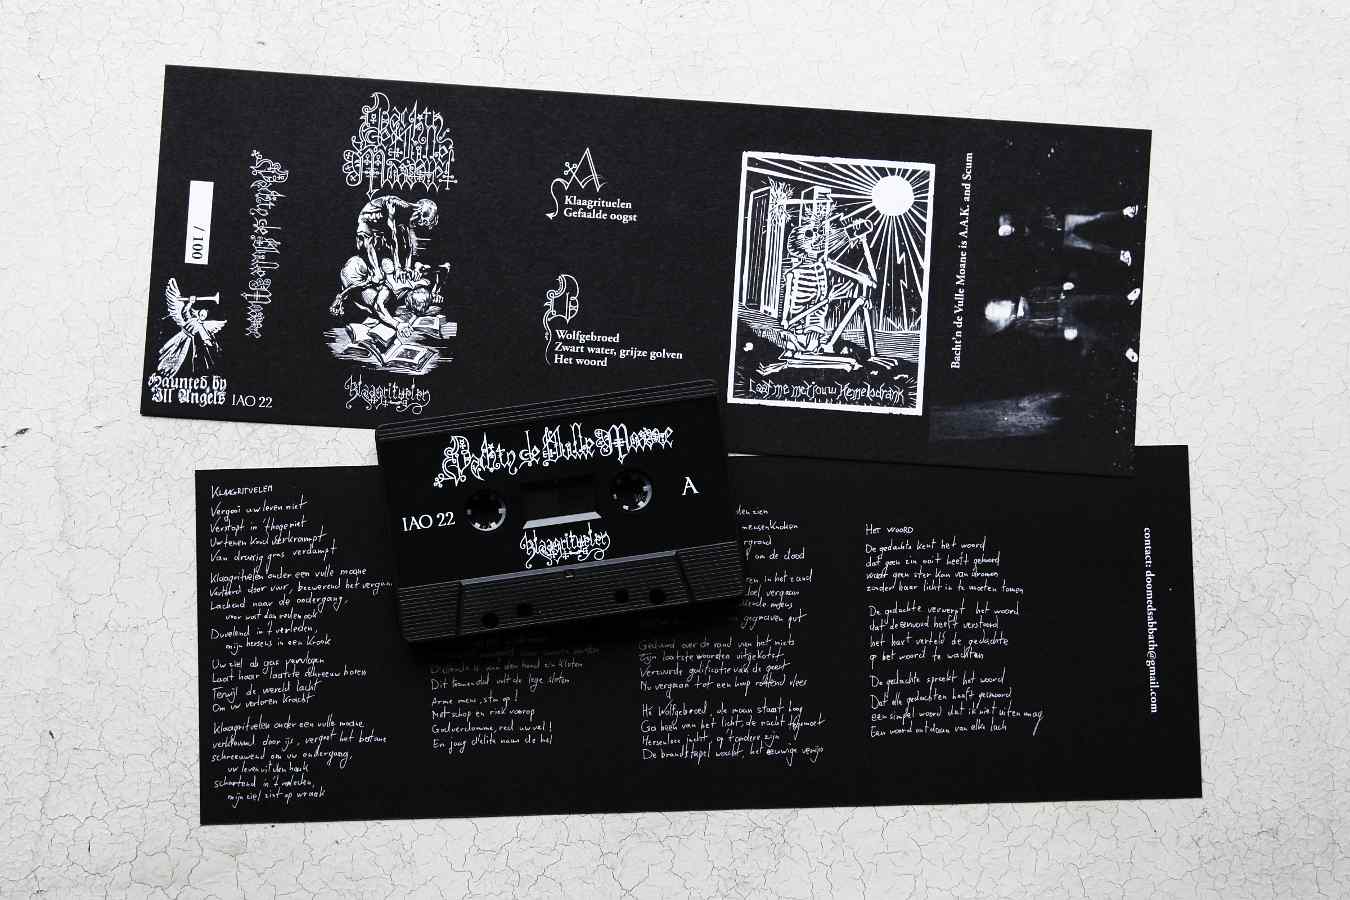 / 100
Haunted by
Ill Angels
IAO 22
Klaagrituelen
A
Klaagrituelen
Gefaalde oogst
B
Wolfgebroed
Zwart water, grijze golven
Het woord
Laat me met jouw Hemelsdrank
Bacht'n de Vulle Moane is A.A.K. and Scum
Bacht'n de Vulle Moane
IAO 22
A
Klaagrituelen
Klaagrituelen
Vergooi uw leven niet
Verstopt in 't hogeniet
Uw tenen koud verkrampt
Van droevig gras verdampt
Klaagrituelen onder een vulle moane
door vuur, bewenend het
Lachend naar de ondergang,
voor wat dan reden ook
Duvelend in 't verleden,
mijn hersens in een krook
Uw ziel als gas vervlogen
Laat haar laatste schreeuw horen
Terwijl de wereld lacht
Om uw verloren kracht
Klaagrituelen onder een vulle moane
verkleumd door ijs, vergeet het bestane
schreeuwend om uw ondergang,
uw leven uit den hoek
in 't verleden,
mijn ziel zint op wraak
uit de lege sloten
Arme mens, stm op!
Met schop en riek voorop
Godverdomme, red uw vel!
En jaag d'elite naar de hel
den zien
mensenknoken
rgrond
om de dood
en in het zand
doel, vergaan
gegraven put
Geduwd over de rand van het niets
Zijn laatste woorden uitgekotst
Verzuurde van de geest
Nu vergaan tot een hoop rottend vlees
Hé Wolfgebroed, de maan staat hoog
Ga heen van het licht, de nacht tegemoet
Hersenloze jacht, op 't andere zijn
De brandstapel wacht, het eeuwige venijn
Het woord
De gedachte kent het woord
dat geen zin ooit heeft gehoord
waar geen ster kan van dromen
zonder haar licht in te moeten tomen
De gedachte verwerpt het woord
dat de eenvoud heeft verstoord
het hart verteld de gedachte
op het woord te wachten
De gedachte spreekt het woord
Dat elk gedachten heeft gesmoord
een simpel woord dat ik niet uiten mag
Een woord ontdaan van elke lach
contact: doomedsabbath@gmail.com